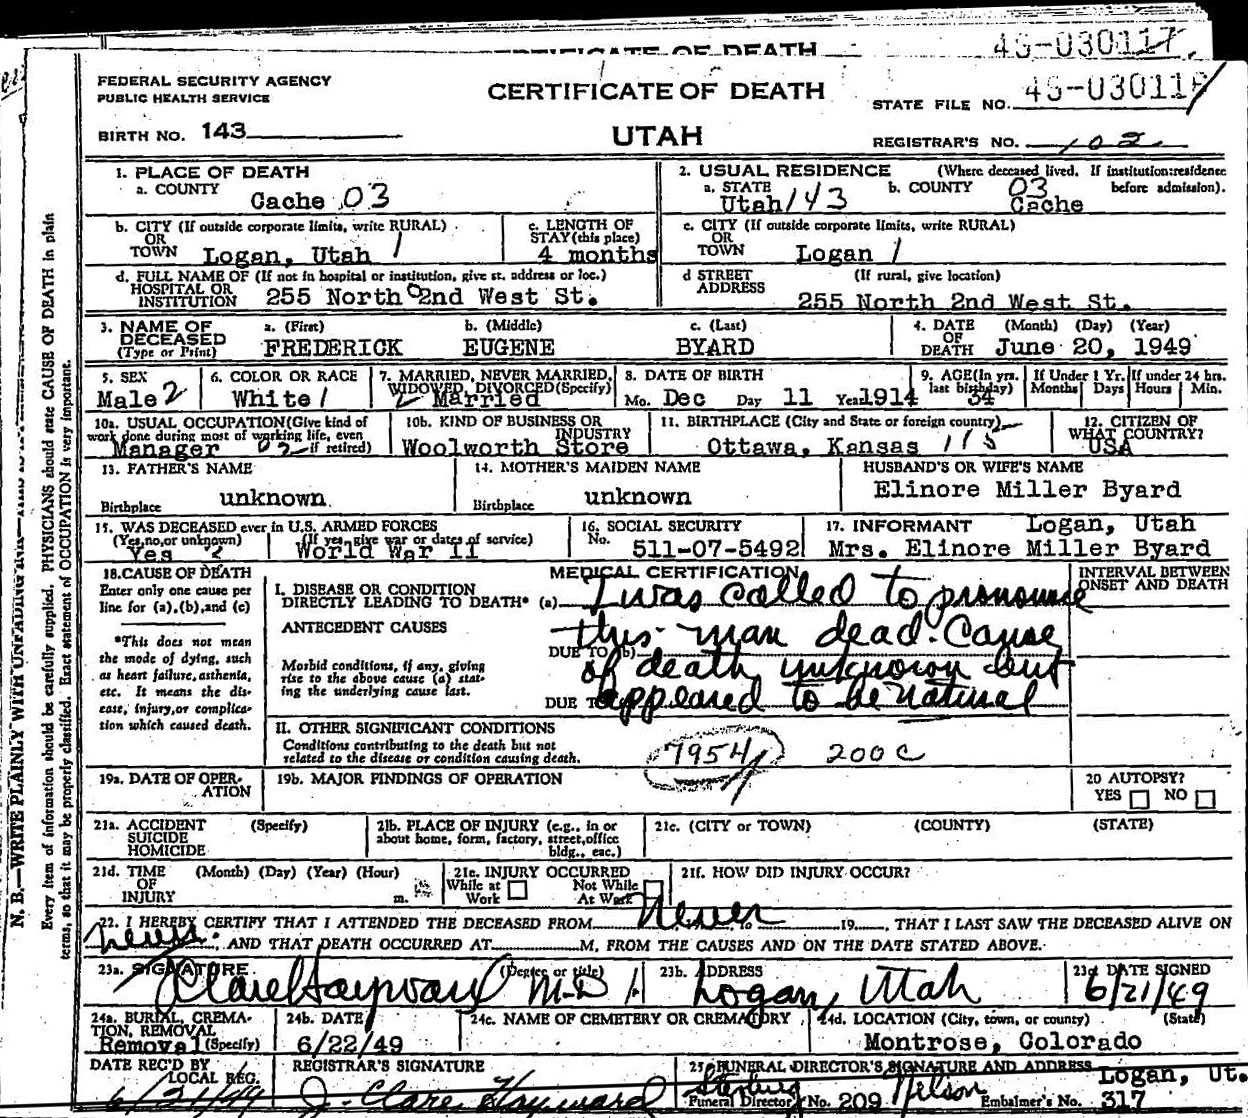 CERTIFICATE OF DEATH 49-030117
FEDERAL SECURITY AGENCY
PUBLIC HEALTH SERVICE
CERTIFICATE OF DEATH
STATE FILE NO. 49-030118
BIRTH NO. 143
UTAH
REGISTRAR'S NO. 102
1. PLACE OF DEATH
a. COUNTY
Cache 03
2. USUAL RESIDENCE (Where deceased lived. If institution:residence before admission).
a. STATE Utah 143
b. COUNTY 03 Cache
b. CITY (If outside corporate limits, write RURAL)
OR
TOWN Logan, Utah 1
c. LENGTH OF STAY (this place)
4 months
c. CITY (If outside corporate limits, write RURAL)
OR
TOWN Logan 1
d. FULL NAME OF (If not in hospital or institution, give st. address or loc.)
HOSPITAL OR
INSTITUTION 255 North 2nd West St.
d STREET (If rural, give location)
ADDRESS
255 North 2nd West St.
3. NAME OF DECEASED (Type or Print)
a. (First) b. (Middle) c. (Last)
FREDERICK EUGENE BYARD
4. DATE OF DEATH (Month) (Day) (Year)
June 20, 1949
5. SEX
Male 2
6. COLOR OR RACE
White 1
7. MARRIED, NEVER MARRIED, WIDOWED, DIVORCED (Specify)
2 Married
8. DATE OF BIRTH
Mo. Dec Day 11 Year 1914
9. AGE (In yrs. last birthday)
34
If Under 1 Yr. Months Days
If under 24 hrs. Hours Min.
10a. USUAL OCCUPATION (Give kind of work done during most of working life, even if retired)
Manager 02
10b. KIND OF BUSINESS OR INDUSTRY
Woolworth Store
11. BIRTHPLACE (City and State or foreign country)
Ottawa, Kansas 115
12. CITIZEN OF WHAT COUNTRY?
USA
13. FATHER'S NAME
unknown
Birthplace
14. MOTHER'S MAIDEN NAME
unknown
Birthplace
HUSBAND'S OR WIFE'S NAME
Elinore Miller Byard
15. WAS DECEASED ever in U.S. ARMED FORCES
(Yes, no, or unknown) (If yes, give war or dates of service)
Yes 2 World War II
16. SOCIAL SECURITY No.
511-07-5492
17. INFORMANT Logan, Utah
Mrs. Elinore Miller Byard
18. CAUSE OF DEATH
Enter only one cause per line for (a), (b), and (c)
*This does not mean the mode of dying, such as heart failure, asthenia, etc. It means the disease, injury, or complication which caused death.
MEDICAL CERTIFICATION
I. DISEASE OR CONDITION DIRECTLY LEADING TO DEATH* (a)
I was called to pronounce
ANTECEDENT CAUSES
this man dead. Cause
DUE TO (b)
Morbid conditions, if any, giving rise to the above cause (a) stating the underlying cause last.
of death unknown but
DUE TO
appeared to be natural
INTERVAL BETWEEN ONSET AND DEATH
II. OTHER SIGNIFICANT CONDITIONS
Conditions contributing to the death but not related to the disease or condition causing death.
7954 200 C
19a. DATE OF OPERATION
19b. MAJOR FINDINGS OF OPERATION
20 AUTOPSY?
YES NO
21a. ACCIDENT SUICIDE HOMICIDE (Specify)
21b. PLACE OF INJURY (e.g., in or about home, form, factory, street, office bldg., eac.)
21c. (CITY or TOWN) (COUNTY) (STATE)
21d. TIME OF INJURY (Month) (Day) (Year) (Hour) m.
21e. INJURY OCCURRED
While at Work Not While At Work
21f. HOW DID INJURY OCCUR?
22. I HEREBY CERTIFY THAT I ATTENDED THE DECEASED FROM Never to 19 , THAT I LAST SAW THE DECEASED ALIVE ON
never , AND THAT DEATH OCCURRED AT M., FROM THE CAUSES AND ON THE DATE STATED ABOVE.
23a. SIGNATURE (Degree or title)
J Clare Hayward M.D 1
23b. ADDRESS
Logan, Utah
23c DATE SIGNED
6/21/49
24a. BURIAL, CREMATION, REMOVAL (Specify)
Removal
24b. DATE
6/22/49
24c. NAME OF CEMETERY OR CREMATORY
24d. LOCATION (City, town, or county) (State)
Montrose, Colorado
DATE REC'D BY LOCAL REG.
6/21/49
REGISTRAR'S SIGNATURE
J. Clare Hayward
25. FUNERAL DIRECTOR'S SIGNATURE AND ADDRESS Logan, Ut.
Nelson
Funeral Director No. 209 Embalmer's No. 317
N. B.—WRITE PLAINLY WITH UNFADING INK
Every item of information should be carefully supplied. PHYSICIANS should state CAUSE OF DEATH in plain
terms, so that it may be properly classified. Exact statement of OCCUPATION is very important.